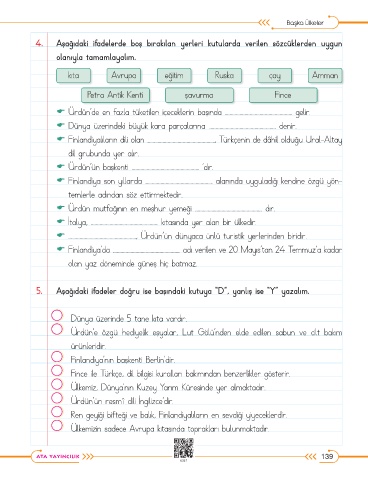 Başka Ülkeler
4. Aşağıdaki ifadelerde boş bırakılan yerleri kutularda verilen sözcüklerden uygun
olanıyla tamamlayalım.
kıta Avrupa eğitim Ruska çay Amman
Petra Antik Kenti şavurma Fince
Ürdün'de en fazla tüketilen içeceklerin başında ........ gelir.
Dünya üzerindeki büyük kara parçalarına ........ denir.
Finlandiyalıların dili olan ........, Türkçenin de dâhil olduğu Ural-Altay
dil grubunda yer alır.
Ürdün'ün başkenti ........ 'dır.
Finlandiya son yıllarda ........ alanında uyguladığı kendine özgü yön-
temlerle adından söz ettirmektedir.
Ürdün mutfağının en meşhur yemeği ........ dır.
İtalya, ........ kıtasında yer alan bir ülkedir.
........, Ürdün'ün dünyaca ünlü turistik yerlerinden biridir.
Finlandiya'da ........ adı verilen ve 20 Mayıs'tan 24 Temmuz'a kadar
olan yaz döneminde güneş hiç batmaz.
5. Aşağıdaki ifadeler doğru ise başındaki kutuya "D", yanlış ise "Y" yazalım.
Dünya üzerinde 5 tane kıta vardır.
Ürdün'e özgü hediyelik eşyalar, Lut Gölü'nden elde edilen sabun ve cilt bakım
ürünleridir.
Finlandiya'nın başkenti Berlin'dir.
Fince ile Türkçe, dil bilgisi kuralları bakımından benzerlikler gösterir.
Ülkemiz, Dünya'nın Kuzey Yarım Küresinde yer almaktadır.
Ürdün'ün resmî dili İngilizce'dir.
Ren geyiği bifteği ve balık, Finlandiyalıların en sevdiği yiyeceklerdir.
Ülkemizin sadece Avrupa kıtasında toprakları bulunmaktadır.
ATA YAYINCILIK
139